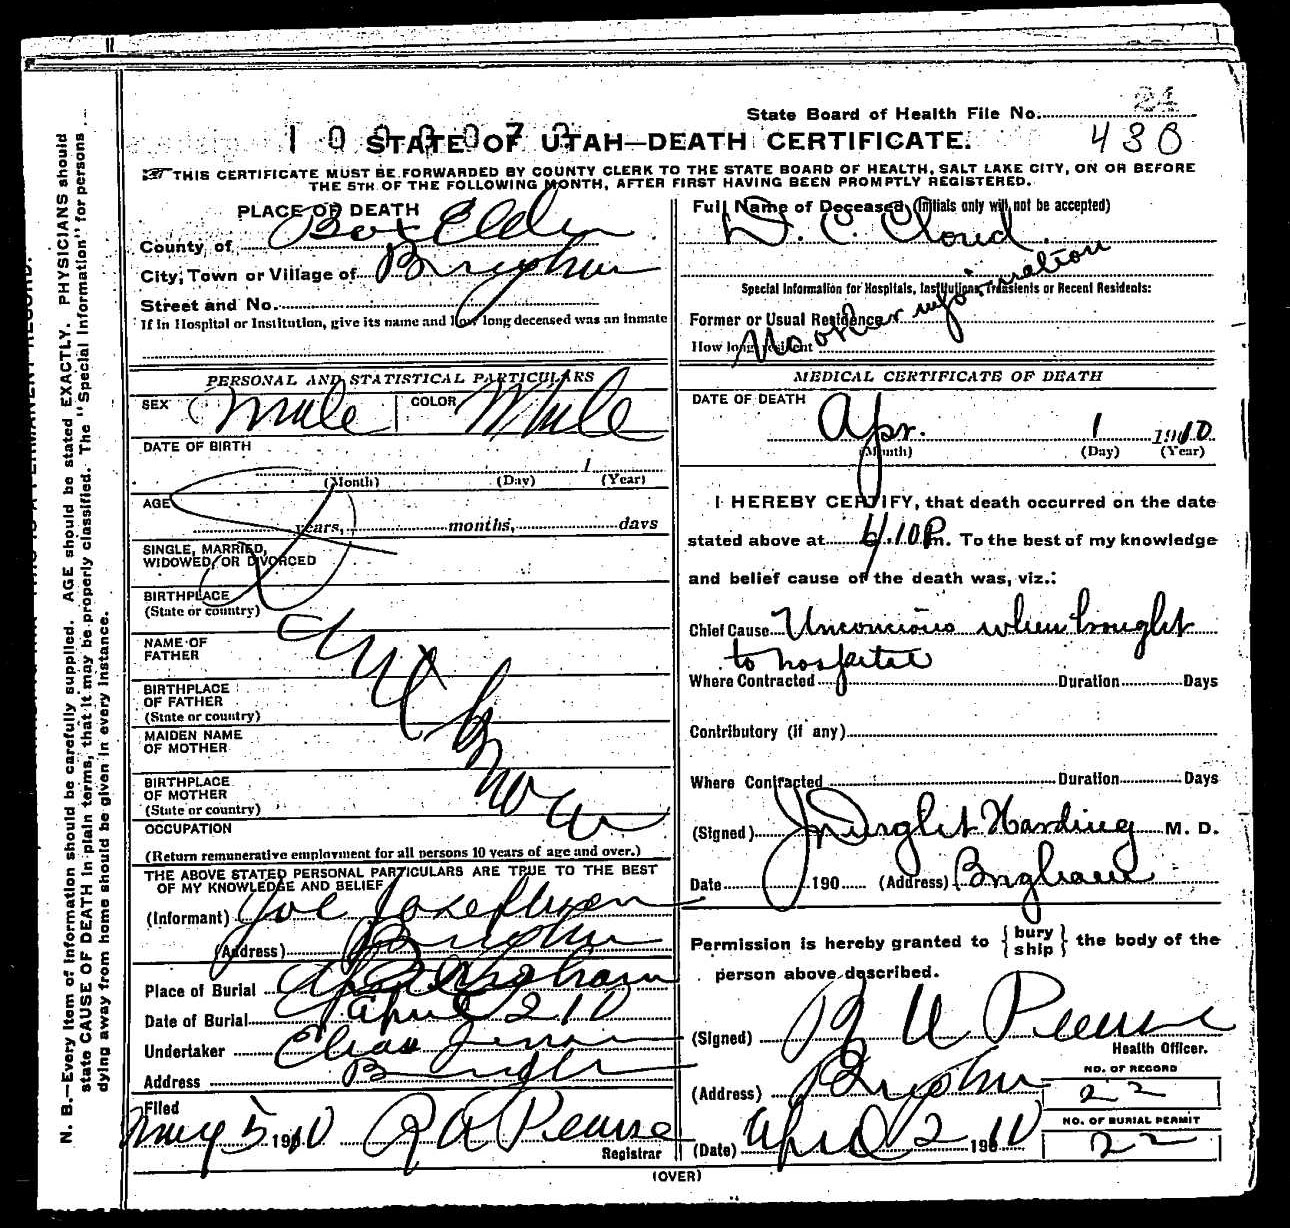 State Board of Health File No. 24
STATE OF UTAH—DEATH CERTIFICATE. 430
THIS CERTIFICATE MUST BE FORWARDED BY COUNTY CLERK TO THE STATE BOARD OF HEALTH, SALT LAKE CITY, ON OR BEFORE
THE 5TH OF THE FOLLOWING MONTH, AFTER FIRST HAVING BEEN PROMPTLY REGISTERED.
PLACE OF DEATH
County of Box Elder
City, Town or Village of Brigham
Street and No.
If in Hospital or Institution, give its name and how long deceased was an inmate
Full Name of Deceased (Initials only will not be accepted)
D. C. Cloud
Special Information for Hospitals, Institutions, Transients or Recent Residents:
Former or Usual Residence
How long resident
No other information
PERSONAL AND STATISTICAL PARTICULARS
SEX Male COLOR White
DATE OF BIRTH
1
(Month) (Day) (Year)
AGE
years, months, days
SINGLE, MARRIED,
WIDOWED, OR DIVORCED
BIRTHPLACE
(State or country)
NAME OF
FATHER
BIRTHPLACE
OF FATHER
(State or country)
MAIDEN NAME
OF MOTHER
BIRTHPLACE
OF MOTHER
(State or country)
OCCUPATION
(Return remunerative employment for all persons 10 years of age and over.)
THE ABOVE STATED PERSONAL PARTICULARS ARE TRUE TO THE BEST
OF MY KNOWLEDGE AND BELIEF
(Informant) Joe Josephson
(Address) Brigham
Place of Burial Brigham
Date of Burial April 2 10
Undertaker Elias Jensen
Address Brigham
Filed
May 5 1910 Pearse
Registrar
MEDICAL CERTIFICATE OF DEATH
DATE OF DEATH
Apr. 1 1910
(Month) (Day) (Year)
I HEREBY CERTIFY, that death occurred on the date
stated above at 4.10 P.m. To the best of my knowledge
and belief cause of the death was, viz.:
Chief Cause Unconcious when brought
to hospital
Where Contracted Duration Days
Contributory (if any)
Where Contracted Duration Days
(Signed) Harding M. D.
Date 190 (Address) Brigham
Permission is hereby granted to { bury ship } the body of the
person above described.
(Signed) Pearse
Health Officer.
(Address) Brigham
NO. OF RECORD
22
NO. OF BURIAL PERMIT
22
(Date) April 2 1910
(OVER)
N. B.—Every item of information should be carefully supplied. AGE should be stated EXACTLY. PHYSICIANS should
state CAUSE OF DEATH in plain terms, that it may be properly classified. The "Special Information" for persons
dying away from home should be given in every instance.